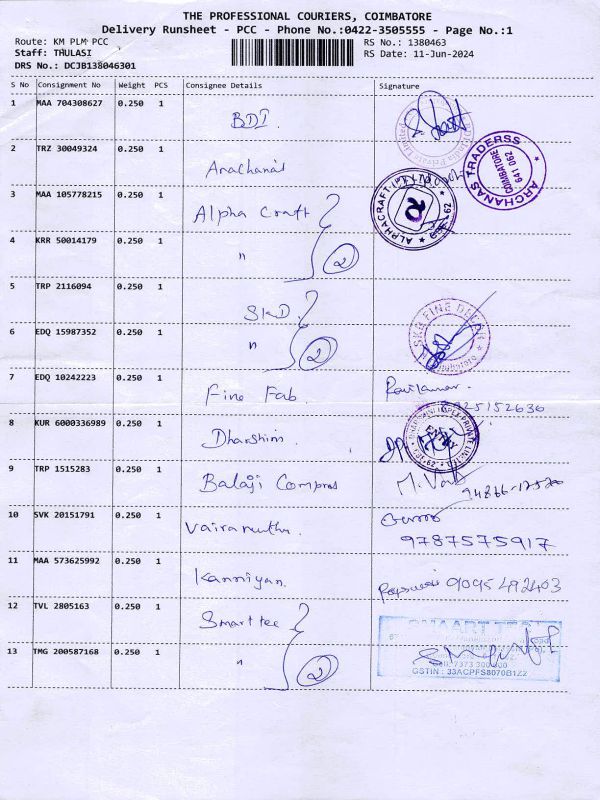 THE PROFESSIONAL COURIERS, COIMBATORE
Delivery Runsheet - PCC - Phone No.:0422-3505555 - Page No.:1
Route: KM PLM PCC
RS No.: 1380463
Staff: THULASI
RS Date: 11-Jun-2024
DRS No.: DCJB138046301
S No Consignment No Weight PCS Consignee Details Signature
1 MAA 704308627 0.250 1 BDI
2 TRZ 30049324 0.250 1 Arachanas
ARCHANAS TRADERSS COIMBATORE 641 062
3 MAA 105778215 0.250 1 Alpha Craft
ALPHACRAFT
4 KRR 50014179 0.250 1 " 2
5 TRP 2116094 0.250 1 SKD
6 EDQ 15987352 0.250 1 " 2
7 EDQ 10242223 0.250 1 Fine Fab
8 KUR 6000336989 0.250 1 Dharshini
9 TRP 1515283 0.250 1 Balaji Compres M.
10 SVK 20151791 0.250 1 Vairamuthu
9787575917
11 MAA 573625992 0.250 1 Kanniyan 9095492403
12 TVL 2805163 0.250 1 Smart tee
13 TMG 200587168 0.250 1 " 2
GSTIN : 33ACPFS8070B1Z2